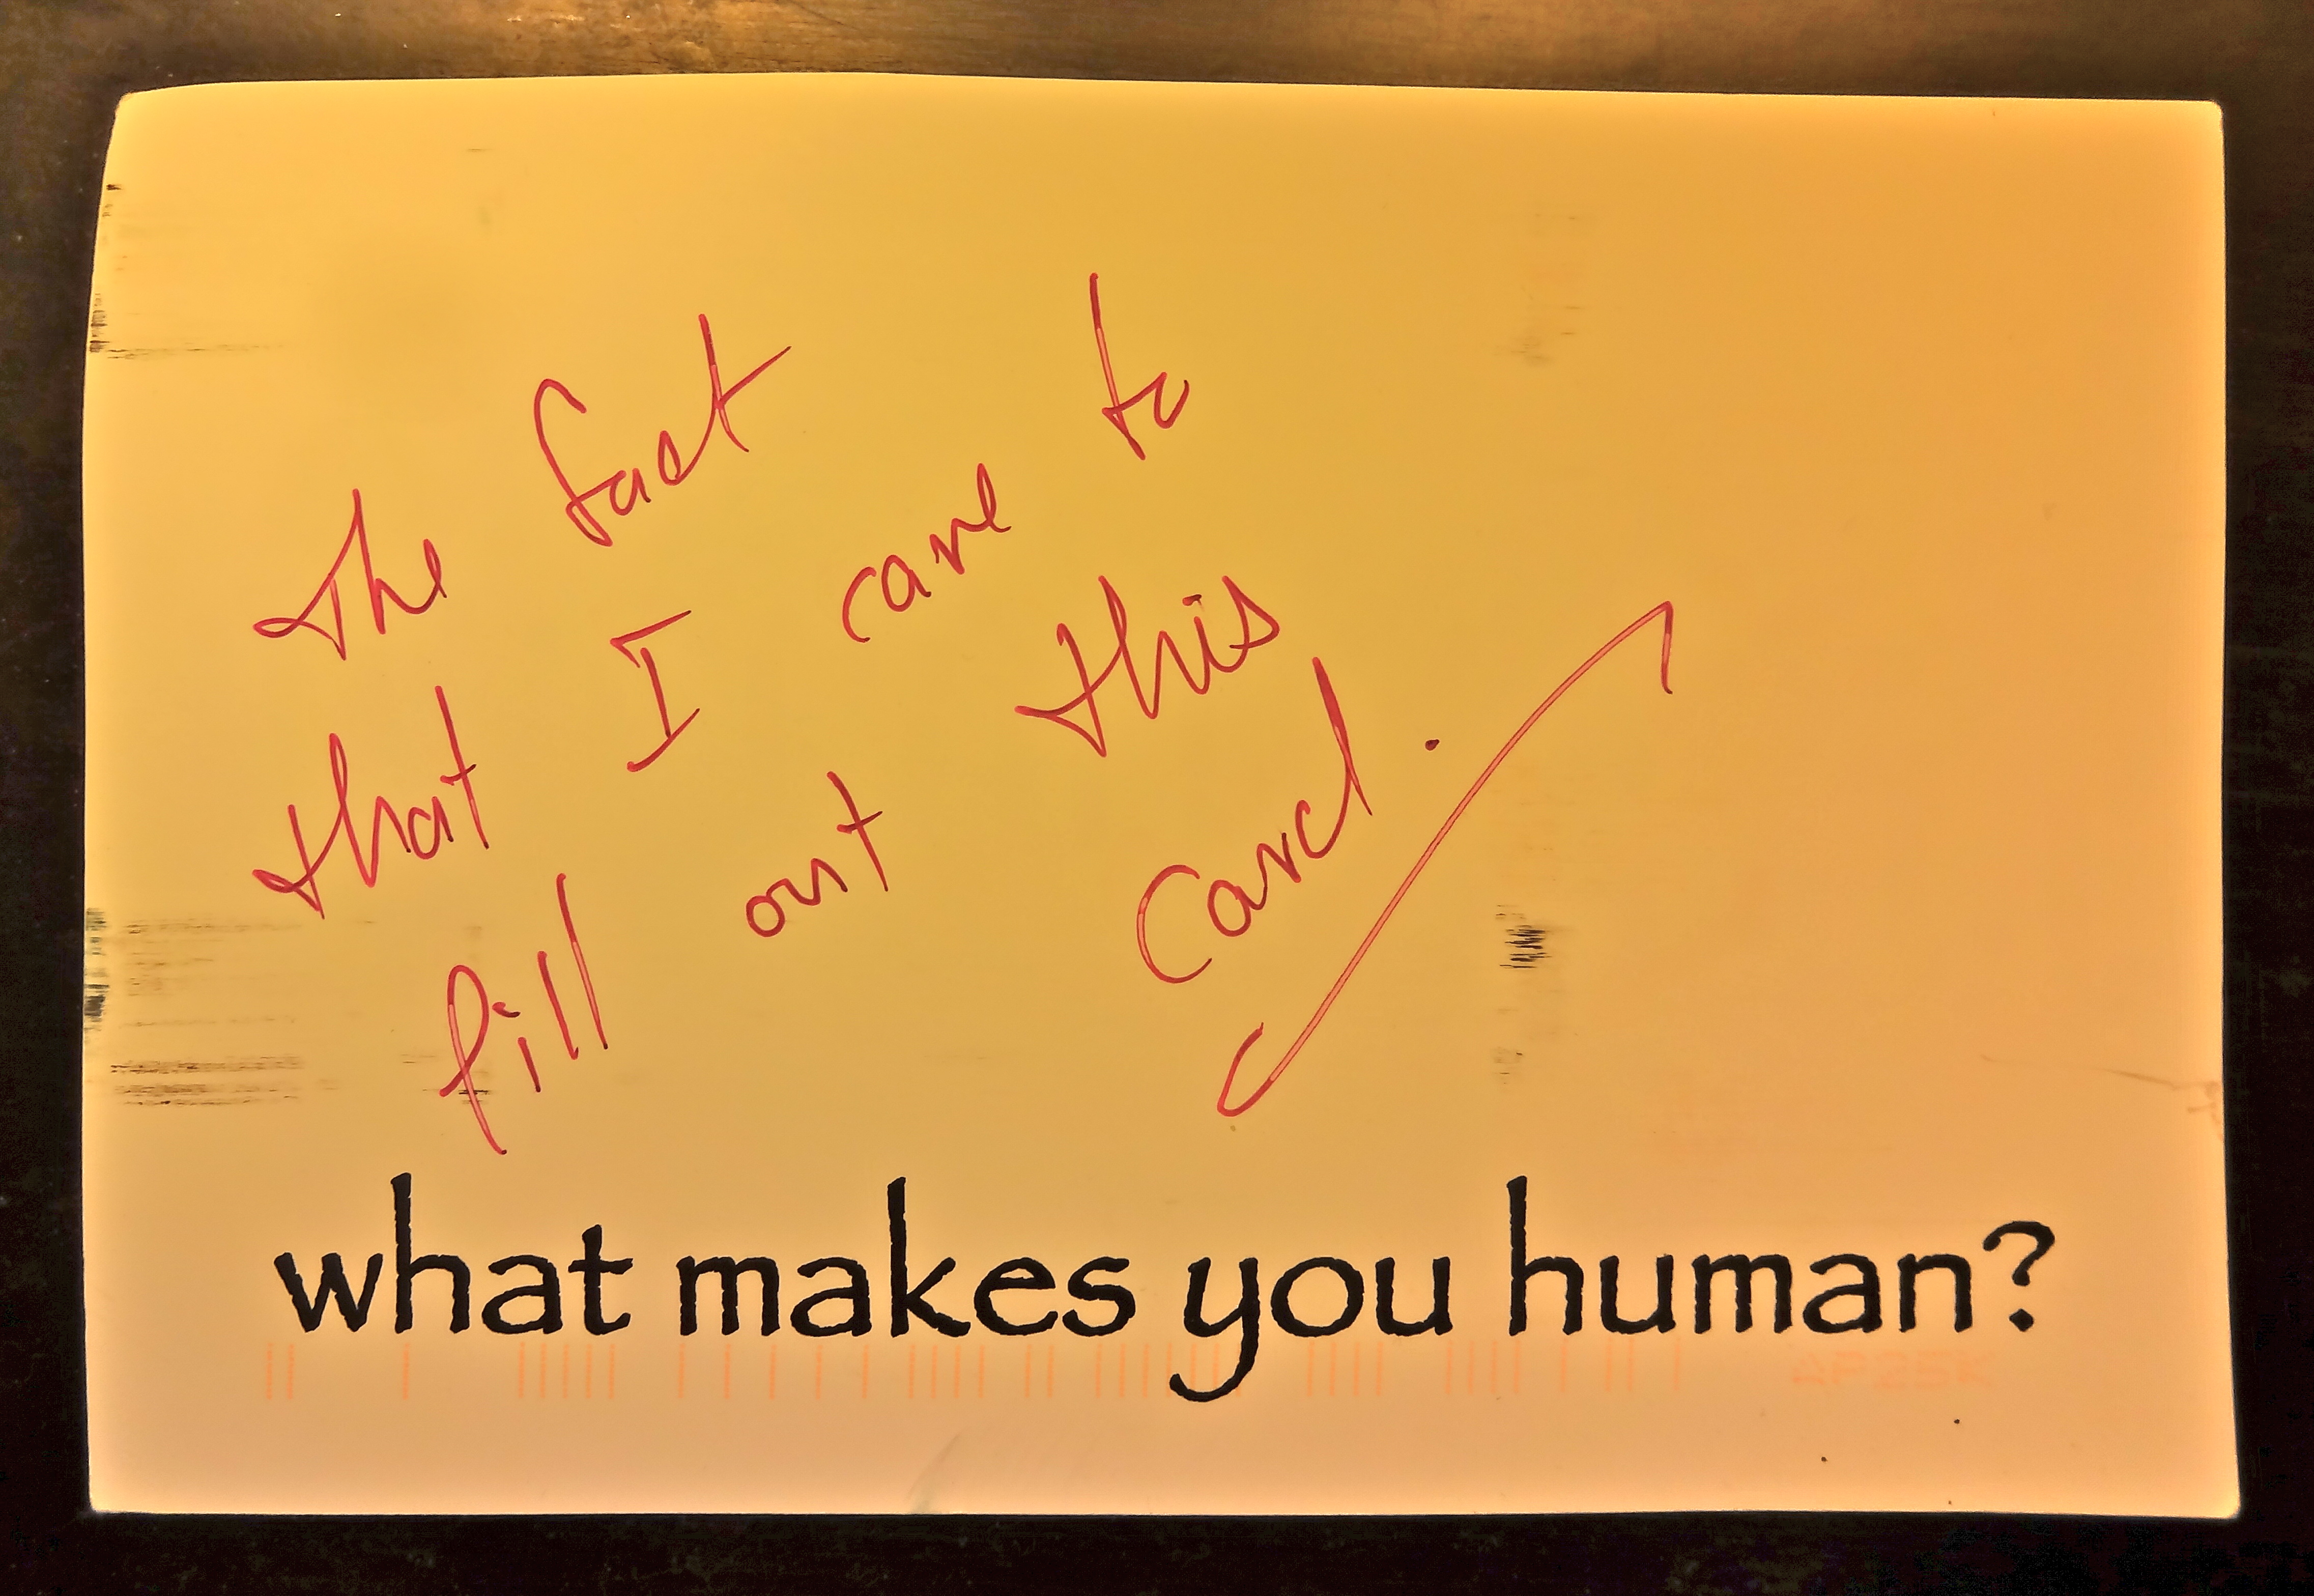 The fact
that I care to
fill out this
Card.
what makes you human?